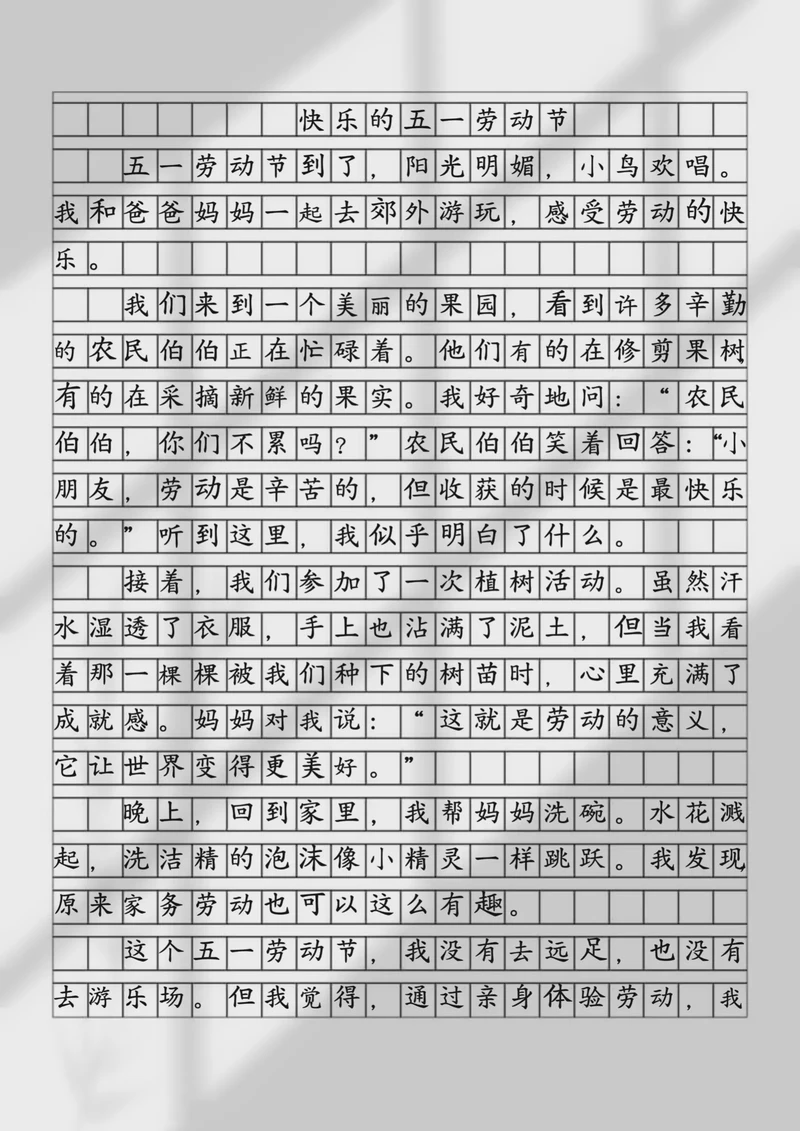 快乐的五一劳动节
五一劳动节到了，阳光明媚，小鸟欢唱。
我和爸爸妈妈一起去郊外游玩，感受劳动的快
乐。
我们来到一个美丽的果园，看到许多辛勤
的农民伯伯正在忙碌着。他们有的在修剪果树，
有的在采摘新鲜的果实。我好奇地问：“农民
伯伯，你们不累吗？”农民伯伯笑着回答：“小
朋友，劳动是辛苦的，但收获的时候是最快乐
的。”听到这里，我似乎明白了什么。
接着，我们参加了一次植树活动。虽然汗
水湿透了衣服，手上也沾满了泥土，但当我看
着那一棵棵被我们种下的树苗时，心里充满了
成就感。妈妈对我说：“这就是劳动的意义，
它让世界变得更美好。”
晚上，回到家里，我帮妈妈洗碗。水花溅
起，洗洁精的泡沫像小精灵一样跳跃。我发现
原来家务劳动也可以这么有趣。
这个五一劳动节，我没有去远足，也没有
去游乐场。但我觉得，通过亲身体验劳动，我